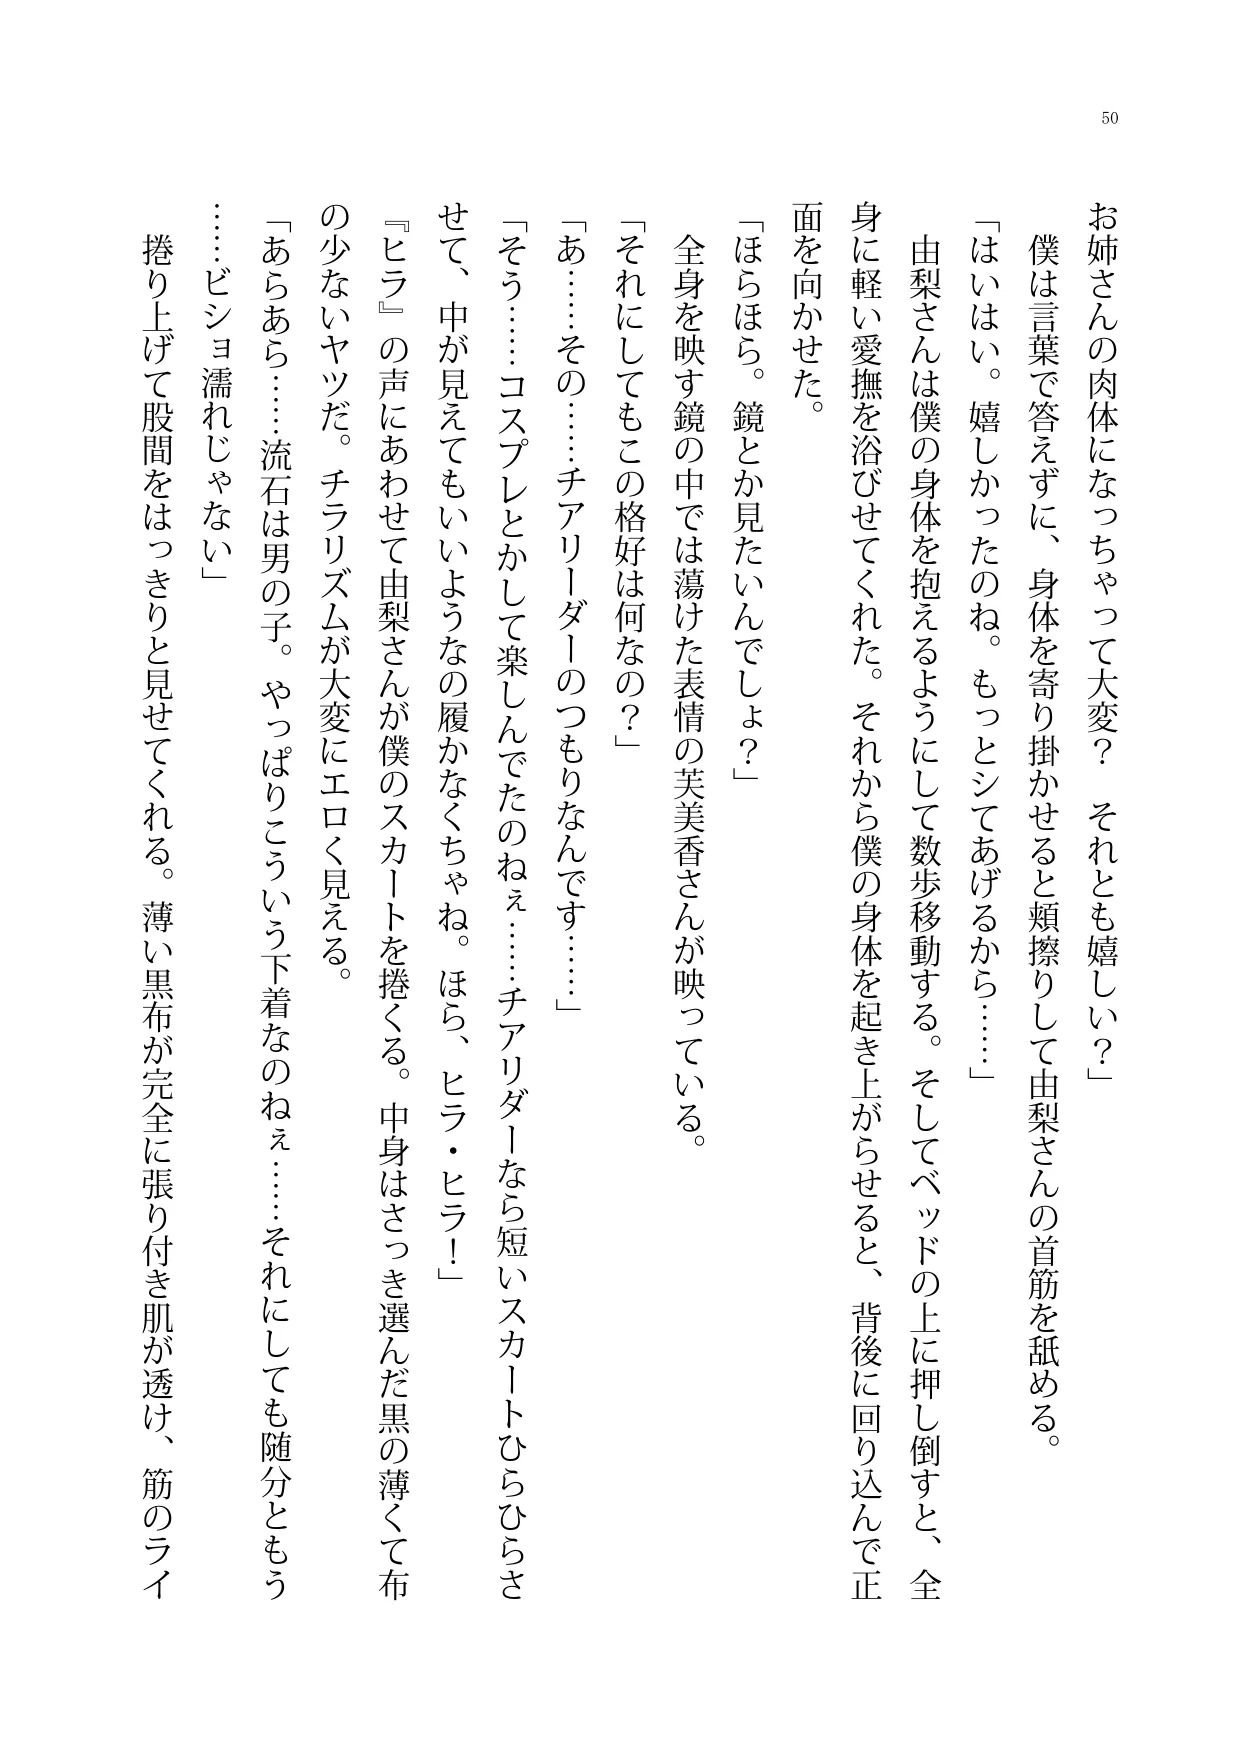 50
お姉さんの肉体になっちゃって大変？　それとも嬉しい？」
　僕は言葉で答えずに、身体を寄り掛かせると頬擦りして由梨さんの首筋を舐める。
「はいはい。嬉しかったのね。もっとシてあげるから……」
　由梨さんは僕の身体を抱えるようにして数歩移動する。そしてベッドの上に押し倒すと、全
身に軽い愛撫を浴びせてくれた。それから僕の身体を起き上がらせると、背後に回り込んで正
面を向かせた。
「ほらほら。鏡とか見たいんでしょ？」
　全身を映す鏡の中では蕩けた表情の芙美香さんが映っている。
「それにしてもこの格好は何なの？」
「あ……その……チアリーダーのつもりなんです……」
「そう……コスプレとかして楽しんでたのねぇ……チアリダーなら短いスカートひらひらさ
せて、中が見えてもいいようなの履かなくちゃね。ほら、ヒラ・ヒラ！」
『ヒラ』の声にあわせて由梨さんが僕のスカートを捲くる。中身はさっき選んだ黒の薄くて布
の少ないヤツだ。チラリズムが大変にエロく見える。
「あらあら……流石は男の子。やっぱりこういう下着なのねぇ……それにしても随分ともう
……ビショ濡れじゃない」
　捲り上げて股間をはっきりと見せてくれる。薄い黒布が完全に張り付き肌が透け、筋のライ